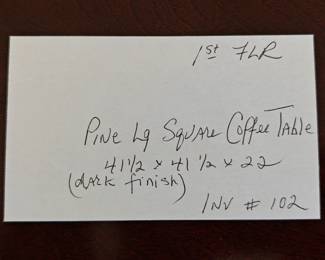 1st FLR
Pine Lg Square Coffee Table
41 1/2 x 41 1/2 x 22
(dark finish)
Inv # 102